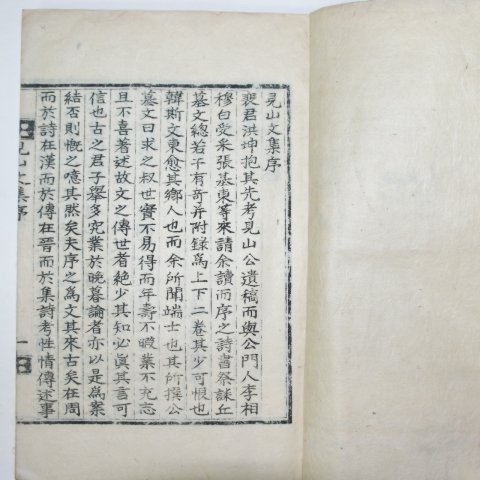 見山文集序
裵君洪坤抱其先考見山公遺稿而與公門人李相
穆白愛采張基東等來請余讀而序之詩書祭誄丘
墓文總若干有奇并附錄爲上下二卷其少可恨也
韓斯文東愈其鄉人也而余所聞端士也其所撰公
墓文曰求之叔世實不易得而年壽不暇業不充忘
且不喜著述故文之傳世者絶少其知必眞其言可
信也古之君子舉多究業於晚暮論者亦以是爲案
結否則慨之噫其然矣夫序之爲文其來古矣在周
而於詩在漢而於傳在晉而於集詩考性情傳述事
見山文集序 一